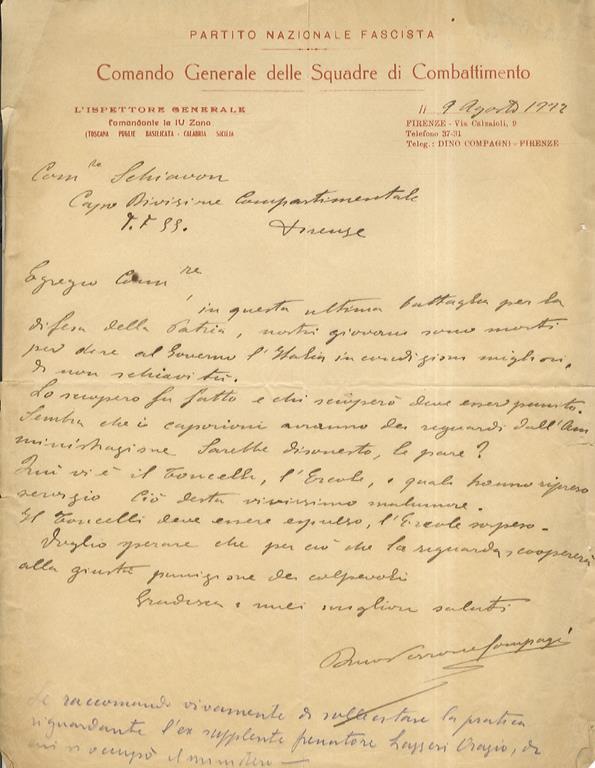 PARTITO NAZIONALE FASCISTA
Comando Generale delle Squadre di Combattimento
L'ISPETTORE GENERALE
Comandante la IV Zona
(TOSCANA PUGLIE BASILICATA - CALABRIA SICILIA
li 9 Agosto 1922
FIRENZE - Via Calzaioli, 9
Telefono 37-31
Teleg.: DINO COMPAGNI - FIRENZE
Com.re Schiavon
Capo Divisione Compartimentale
FF.SS. Firenze
Egregio Comm.re
in questa ultima battaglia per la
difesa della Patria, nostri giovani sono morti
per dare al Governo l'Italia in condizioni migliori,
di non schiavitù.
Lo sciopero fu fatto e chi scioperò deve esser punito.
Sembra che i caporioni avranno dei riguardi dall'Am
ministrazione Sarebbe disonesto, le pare?
Qui vi è il Toncelli, l'Ercole, i quali hanno ripreso
servizio Ciò desta vivissimo malumore.
Il Toncelli deve essere espulso, l'Ercole sospeso -
Voglio sperare che per ciò che la riguarda coopererà
alla giusta punizione dei colpevoli
Gradisca i miei migliori saluti
Dino Perrone Compagni
Le raccomando vivamente di sollecitare la pratica
riguardante l'ex supplente frenatore Orazio, di
cui si occupò il ministero -